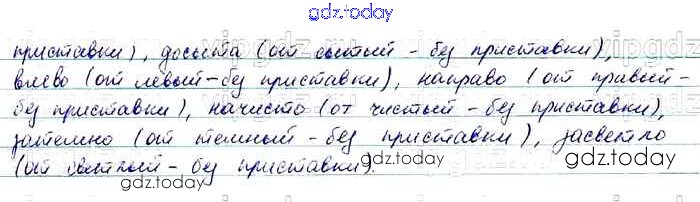 gdz.today
приставки), досыта (от сытый - без приставки),
влево (от левый - без приставки), направо (от правый -
без приставки), начисто (от чистый - без приставки),
затемно (от темный - без приставки), засветло
(от светлый - без приставки).
gdz.today
gdz.today